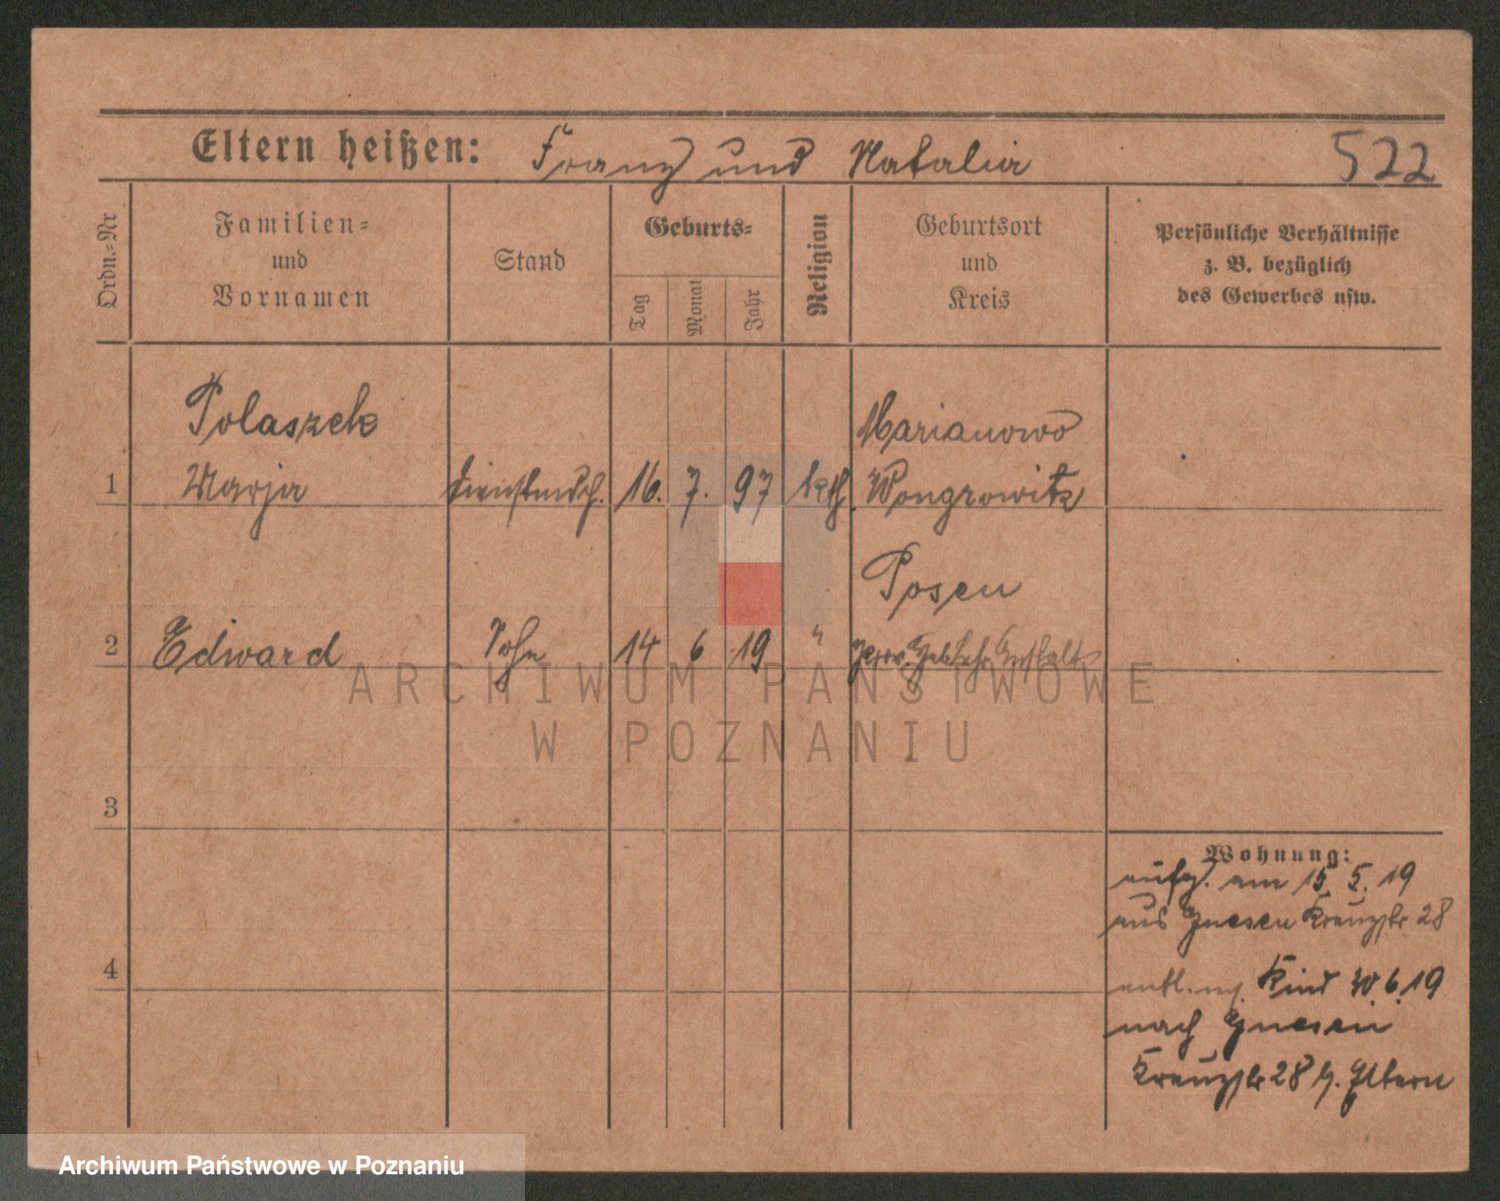 Eltern heißen: Franz und Natalia 522
Ordn.=Nr
Familien=
und
Vornamen
Stand
Geburts=
Tag
Monat
Jahr
Religion
Geburtsort
und
Kreis
Persönliche Verhältnisse
z. B. bezüglich
des Gewerbes usw.
Polaszek Marianowo
1 Marja Dienstmdch. 16. 7. 97 kth. Wongrowitz
Posen
2 Edward Sohn 14 6 19 " Prov. Anstalt
3
4
Wohnung:
aufg. am 15. 5. 19
aus Gnesen Kreuzstr 28
entl. m. Kind 30.6.19
nach Gnesen
Kreuzstr 28 b. Eltern
ARCHIWUM PAŃSTWOWE
W POZNANIU
Archiwum Państwowe w Poznaniu